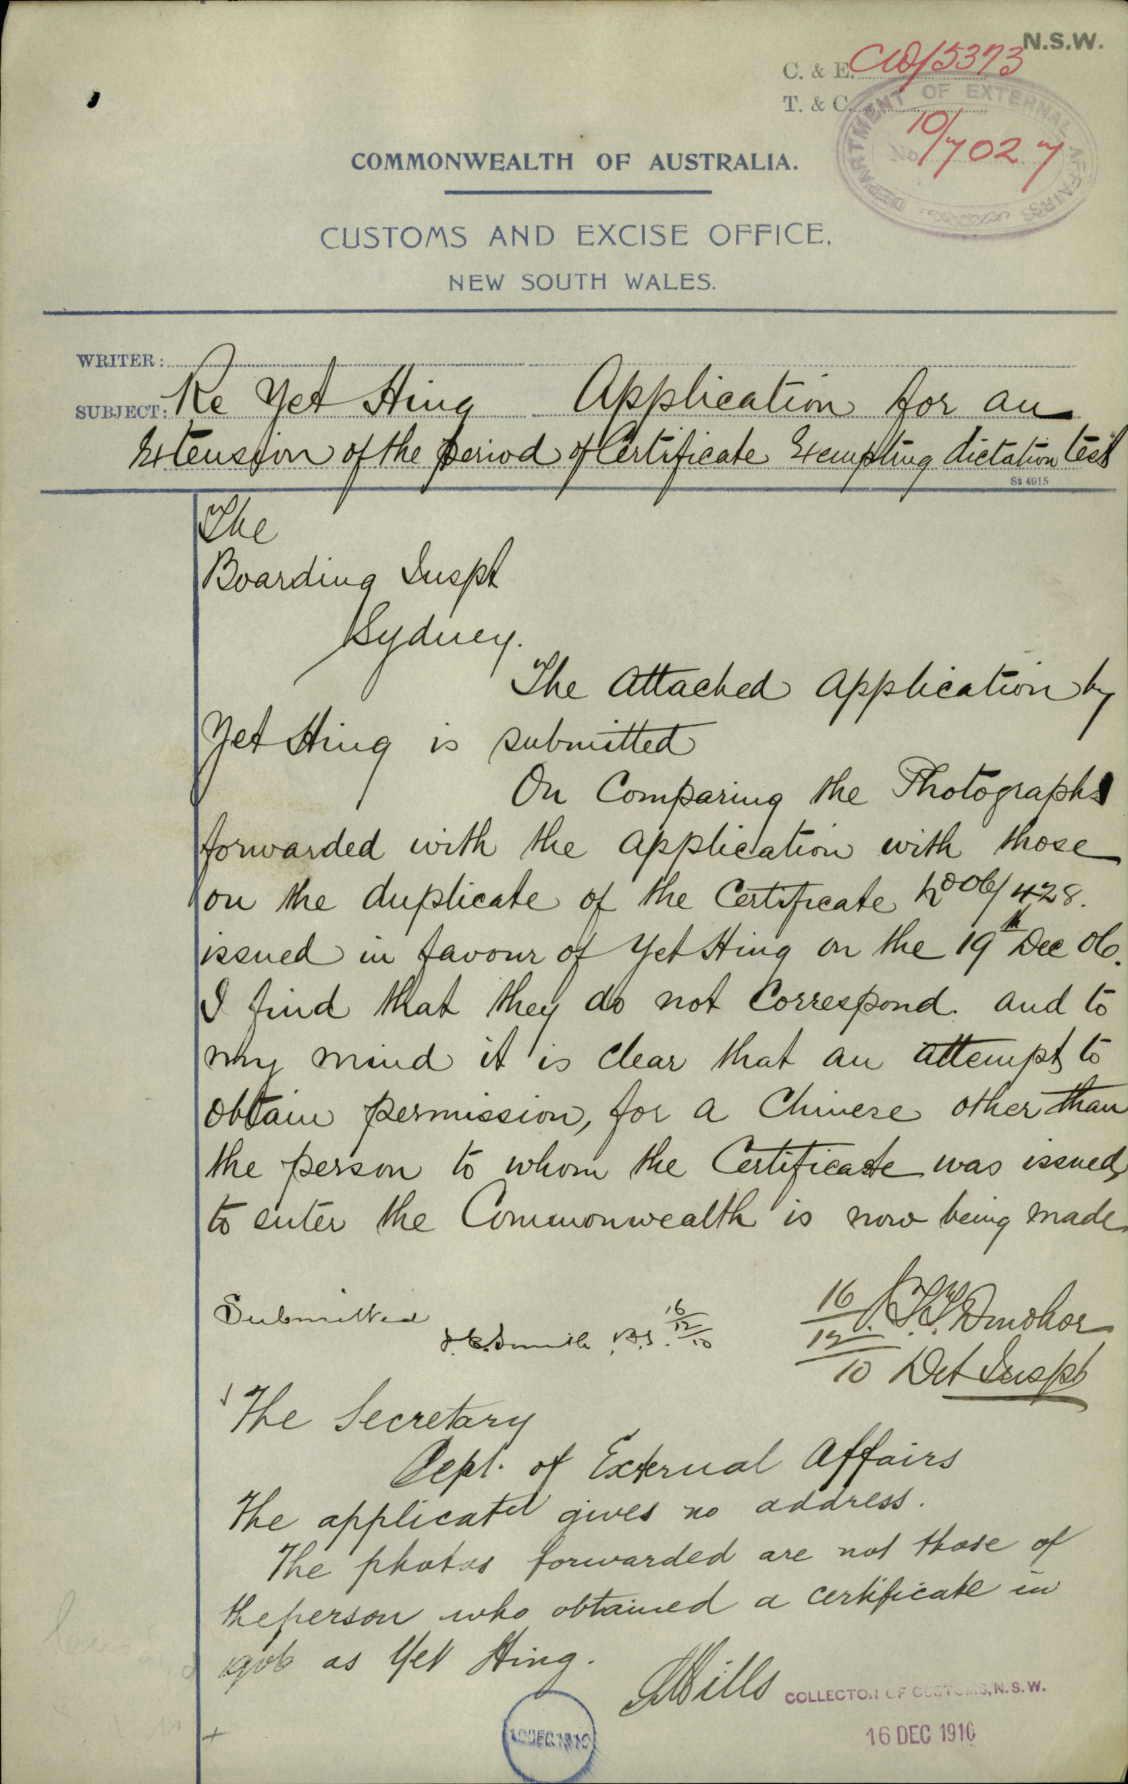 N.S.W.
C. & E. C10/5373
T. & C.
DEPARTMENT OF EXTERNAL AFFAIRS
No 10/7027
COMMONWEALTH OF AUSTRALIA.
CUSTOMS AND EXCISE OFFICE,
NEW SOUTH WALES.
WRITER:
SUBJECT: Re Yet Hing Application for an
Extension of the period of Certificate Exempting dictation test
St 4015
The
Boarding Inspt
Sydney.
The Attached Application by
Yet Hing is submitted
On Comparing the Photographs
forwarded with the Application with those
on the duplicate of the Certificate No 06/428.
issued in favour of Yet Hing on the 19th Dec 06.
I find that they do not Correspond. and to
my mind it is clear that an attempt to
obtain permission, for a Chinese other than
the person to whom the Certificate was issued,
to enter the Commonwealth is now being made
16/12/10 Donohoe
Submitted
16/12/10
Det Inspt
The Secretary
Dept. of External Affairs
The applicant gives no address.
The photos forwarded are not those of
the person who obtained a certificate in
1906 as Yet Hing.
Mills
COLLECTOR OF CUSTOMS, N.S.W.
16 DEC 1910
DEC 1910